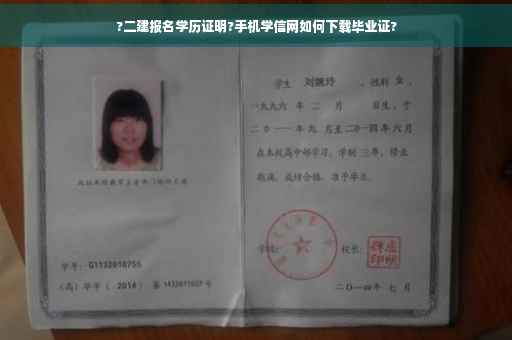 ?二建报名学历证明?手机学信网如何下载毕业证?
学生 刘婉玲 ，性别 女 ，
一九九六 年 二 月 日生，于
二〇一一 年 九 月至 二〇一四 年 六 月
在本校高中部学习，学制 三年，修业
期满，成绩合格，准予毕业。
学校： 校长：
学号： G1132010755
(高) 毕字 ( 2014 ) 第 1432011027 号
二〇一四年 七 月